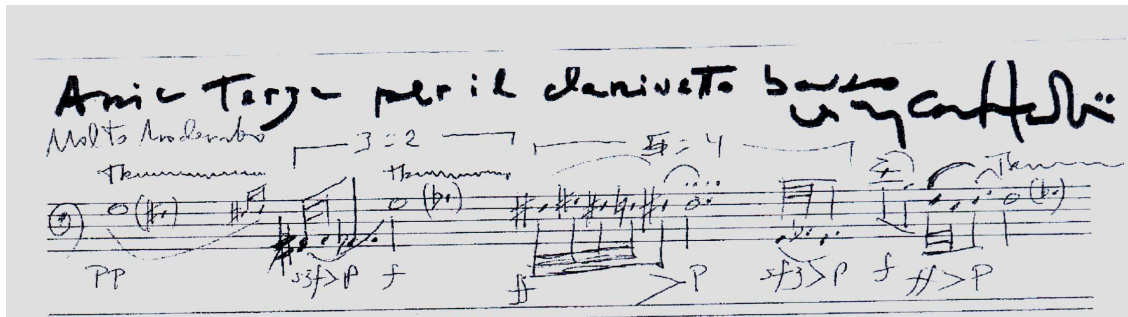 Aria Terza per il clarinetto basso
Molto Moderato 3=2 5=4
Tr Tr Tr
pp sfz>p f ff >p sfz>p f ff>p